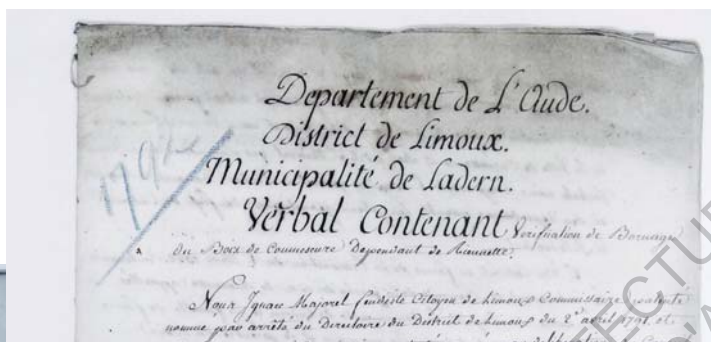 Departement de L'Aude.
District de Limoux.
Municipalité de Ladern.
Verbal Contenant Verification de Bornage
du Bois de Dependant de Rieunette.
Nous Ignace Majorel feudiste Citoyen de Limoux Commissaire
nommé par arrêté du Directoire du District de Limoux du 2 avril 1791. et